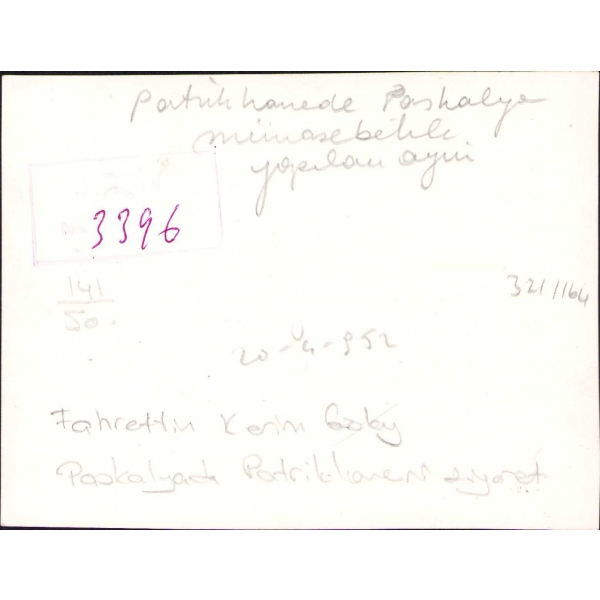 Patrikhanede Paskalya
münasebetile
yapılan ayin
3396
141
50.
321/164
20-4-952
Fahrettin Kerim Gökay
Paskalyada Patrikhaneyi ziyaret